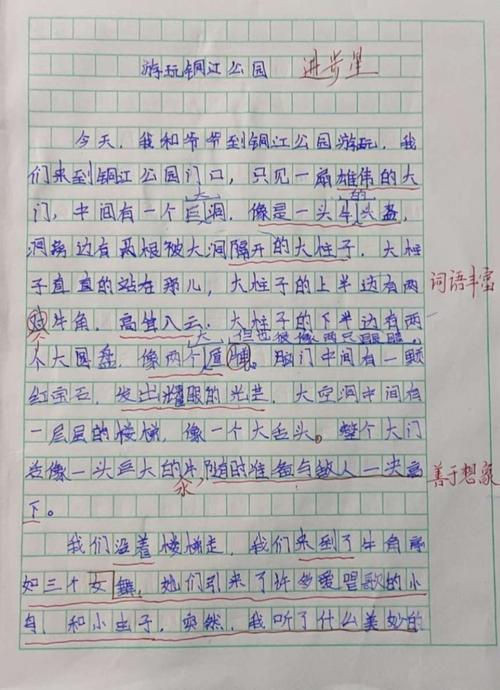 游玩铜江公园 进步星
今天，我和爷爷到铜江公园游玩，我
们来到铜江公园门口，只见一扇雄伟的大
门，中间有一个巨大洞，像是一头牛的头盔，
洞旁边有两根被大洞隔开的大柱子，大柱
子直直的站在那儿，大柱子的上半边有两
词语丰富
个牛角，高耸入云，大柱子的下半边有两
个大圆盘，像两个盾牌。脑门中间有一颗
红宝石，发出耀眼的光芒，大空洞中间有
一层层的楼梯，像一个大舌头。整个大门
若像一头巨大的牛，随时准备与敌人一决高
善于想象
下。
我们沿着楼梯走，我们来到了牛角
如三个女，她们引来了许多爱唱歌的小
和小虫子，突然，我听了什么美妙的